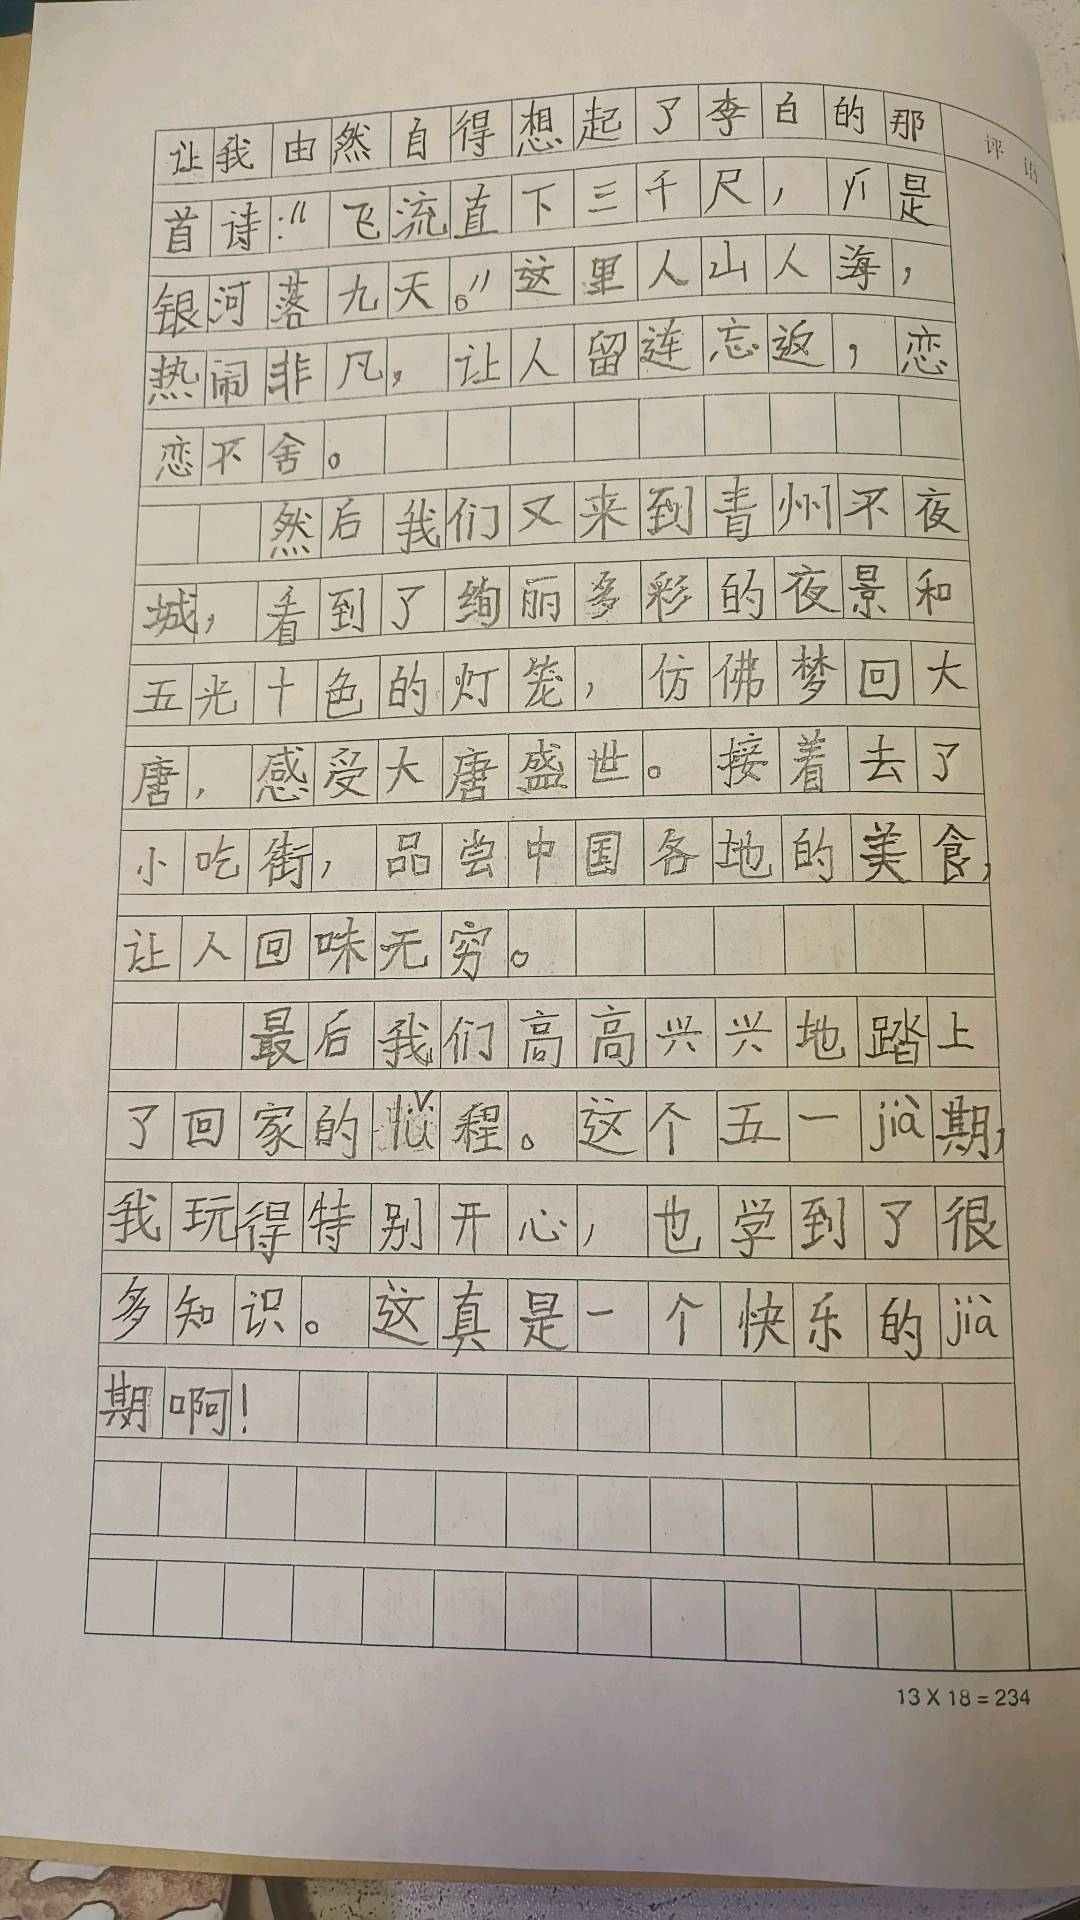 评语
让我由然自得想起了李白的那
首诗:"飞流直下三千尺,是
银河落九天。"这里人山人海,
热闹非凡,让人留连忘返,恋
恋不舍。
然后我们又来到青州不夜
城,看到了绚丽多彩的夜景和
五光十色的灯笼,仿佛梦回大
唐,感受大唐盛世。接着去了
小吃街,品尝中国各地的美食,
让人回味无穷。
最后我们高高兴兴地踏上
了回家的lǚ程。这个五一jià期,
我玩得特别开心,也学到了很
多知识。这真是一个快乐的jià
期啊!
13 X 18 = 234